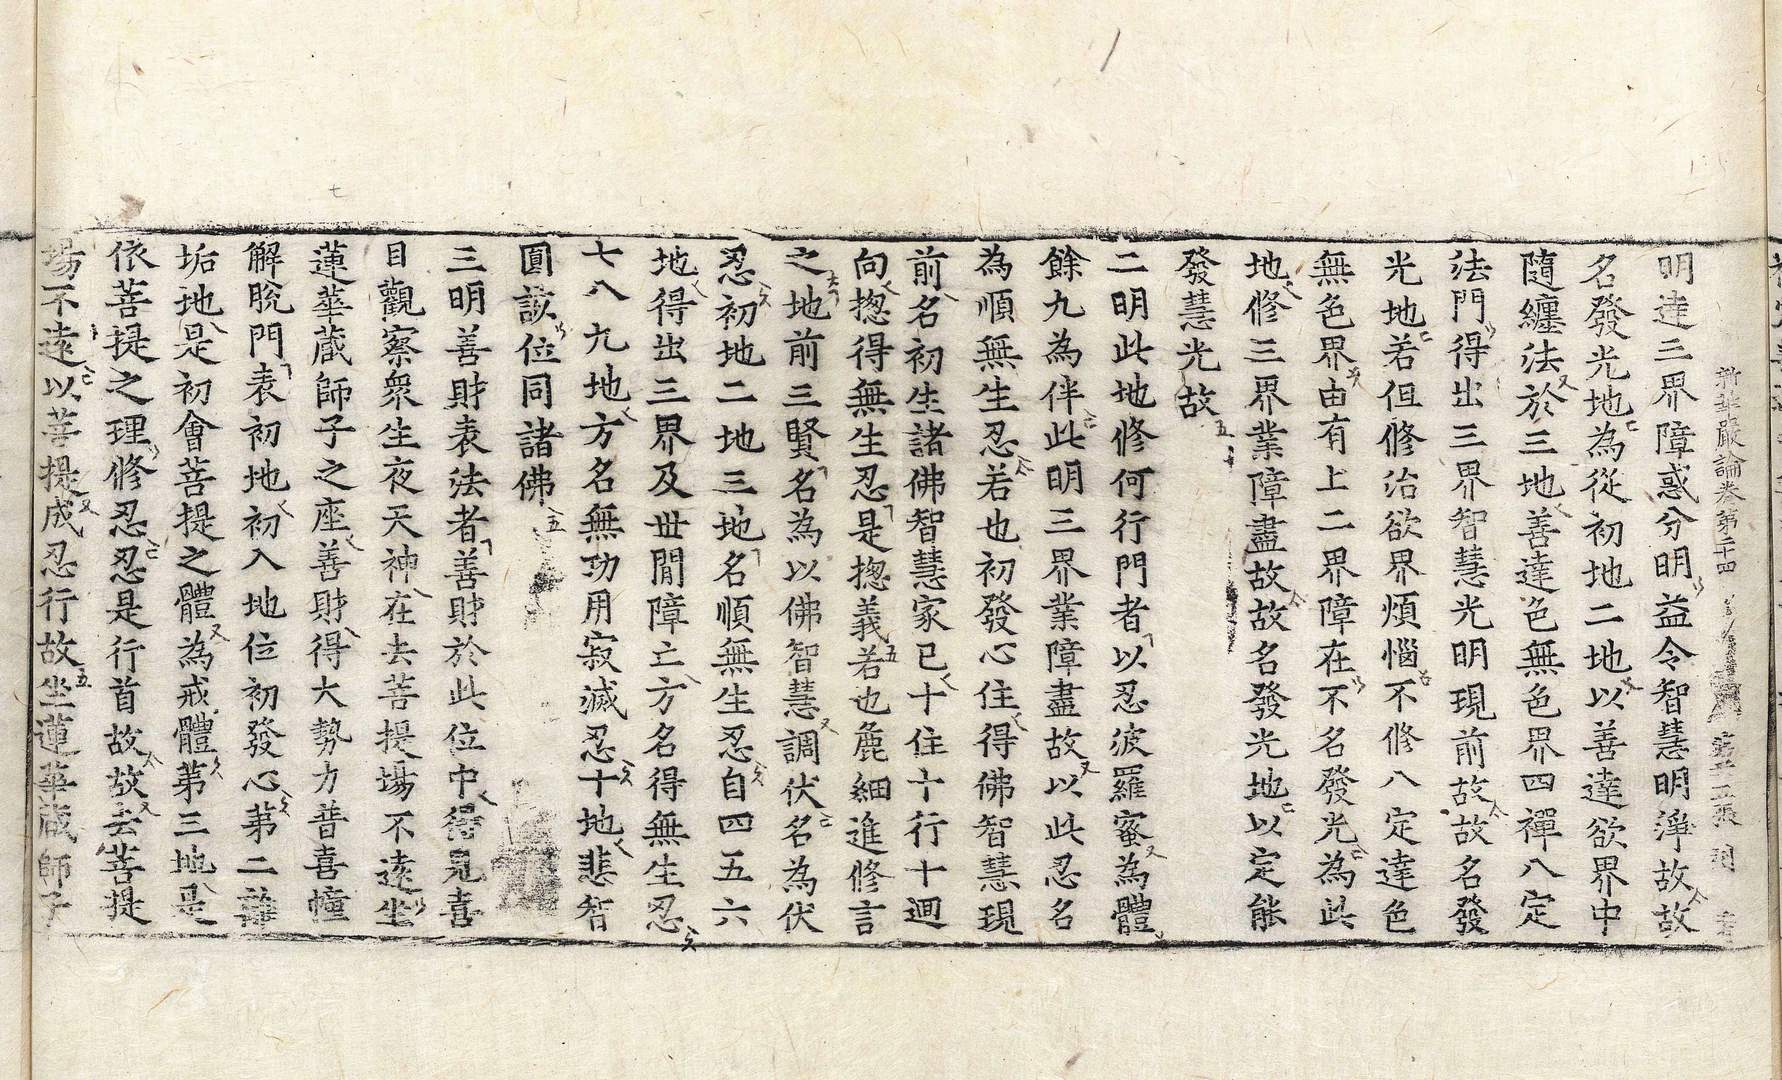 新華嚴論卷第二十四
明達三界障惑分明益令智慧明淨故故
名發光地為從初地二地以善達欲界中
隨纏法於三地善達色無色界四禪八定
法門得出三界智慧光明現前故故名發
光地若但修治欲界煩惱不修八定達色
無色界由有上二界障在不名發光為此
地修三界業障盡故故名發光地以定能
發慧光故
二明此地修何行門者以忍波羅蜜為體
餘九為伴此明三界業障盡故以此忍名
為順無生忍若也初發心住得佛智慧現
前名初生諸佛智慧家已十住十行十迴
向捴得無生忍是捴義若也麁細進修言
之地前三賢名為以佛智慧調伏名為伏
忍初地二地三地名順無生忍自四五六
地得出三界及世閒障亡方名得無生忍
七八九地方名無功用寂滅忍十地悲智
圓該位同諸佛
三明善財表法者善財於此位中得見喜
目觀察眾生夜天神在去菩提場不遠坐
蓮華藏師子之座善財得大勢力普喜幢
解脫門表初地初入地位初發心第二離
垢地是初會菩提之體為戒體第三地是
依菩提之理修忍忍是行首故故去菩提
場不遠以菩提成忍行故坐蓮華藏師子